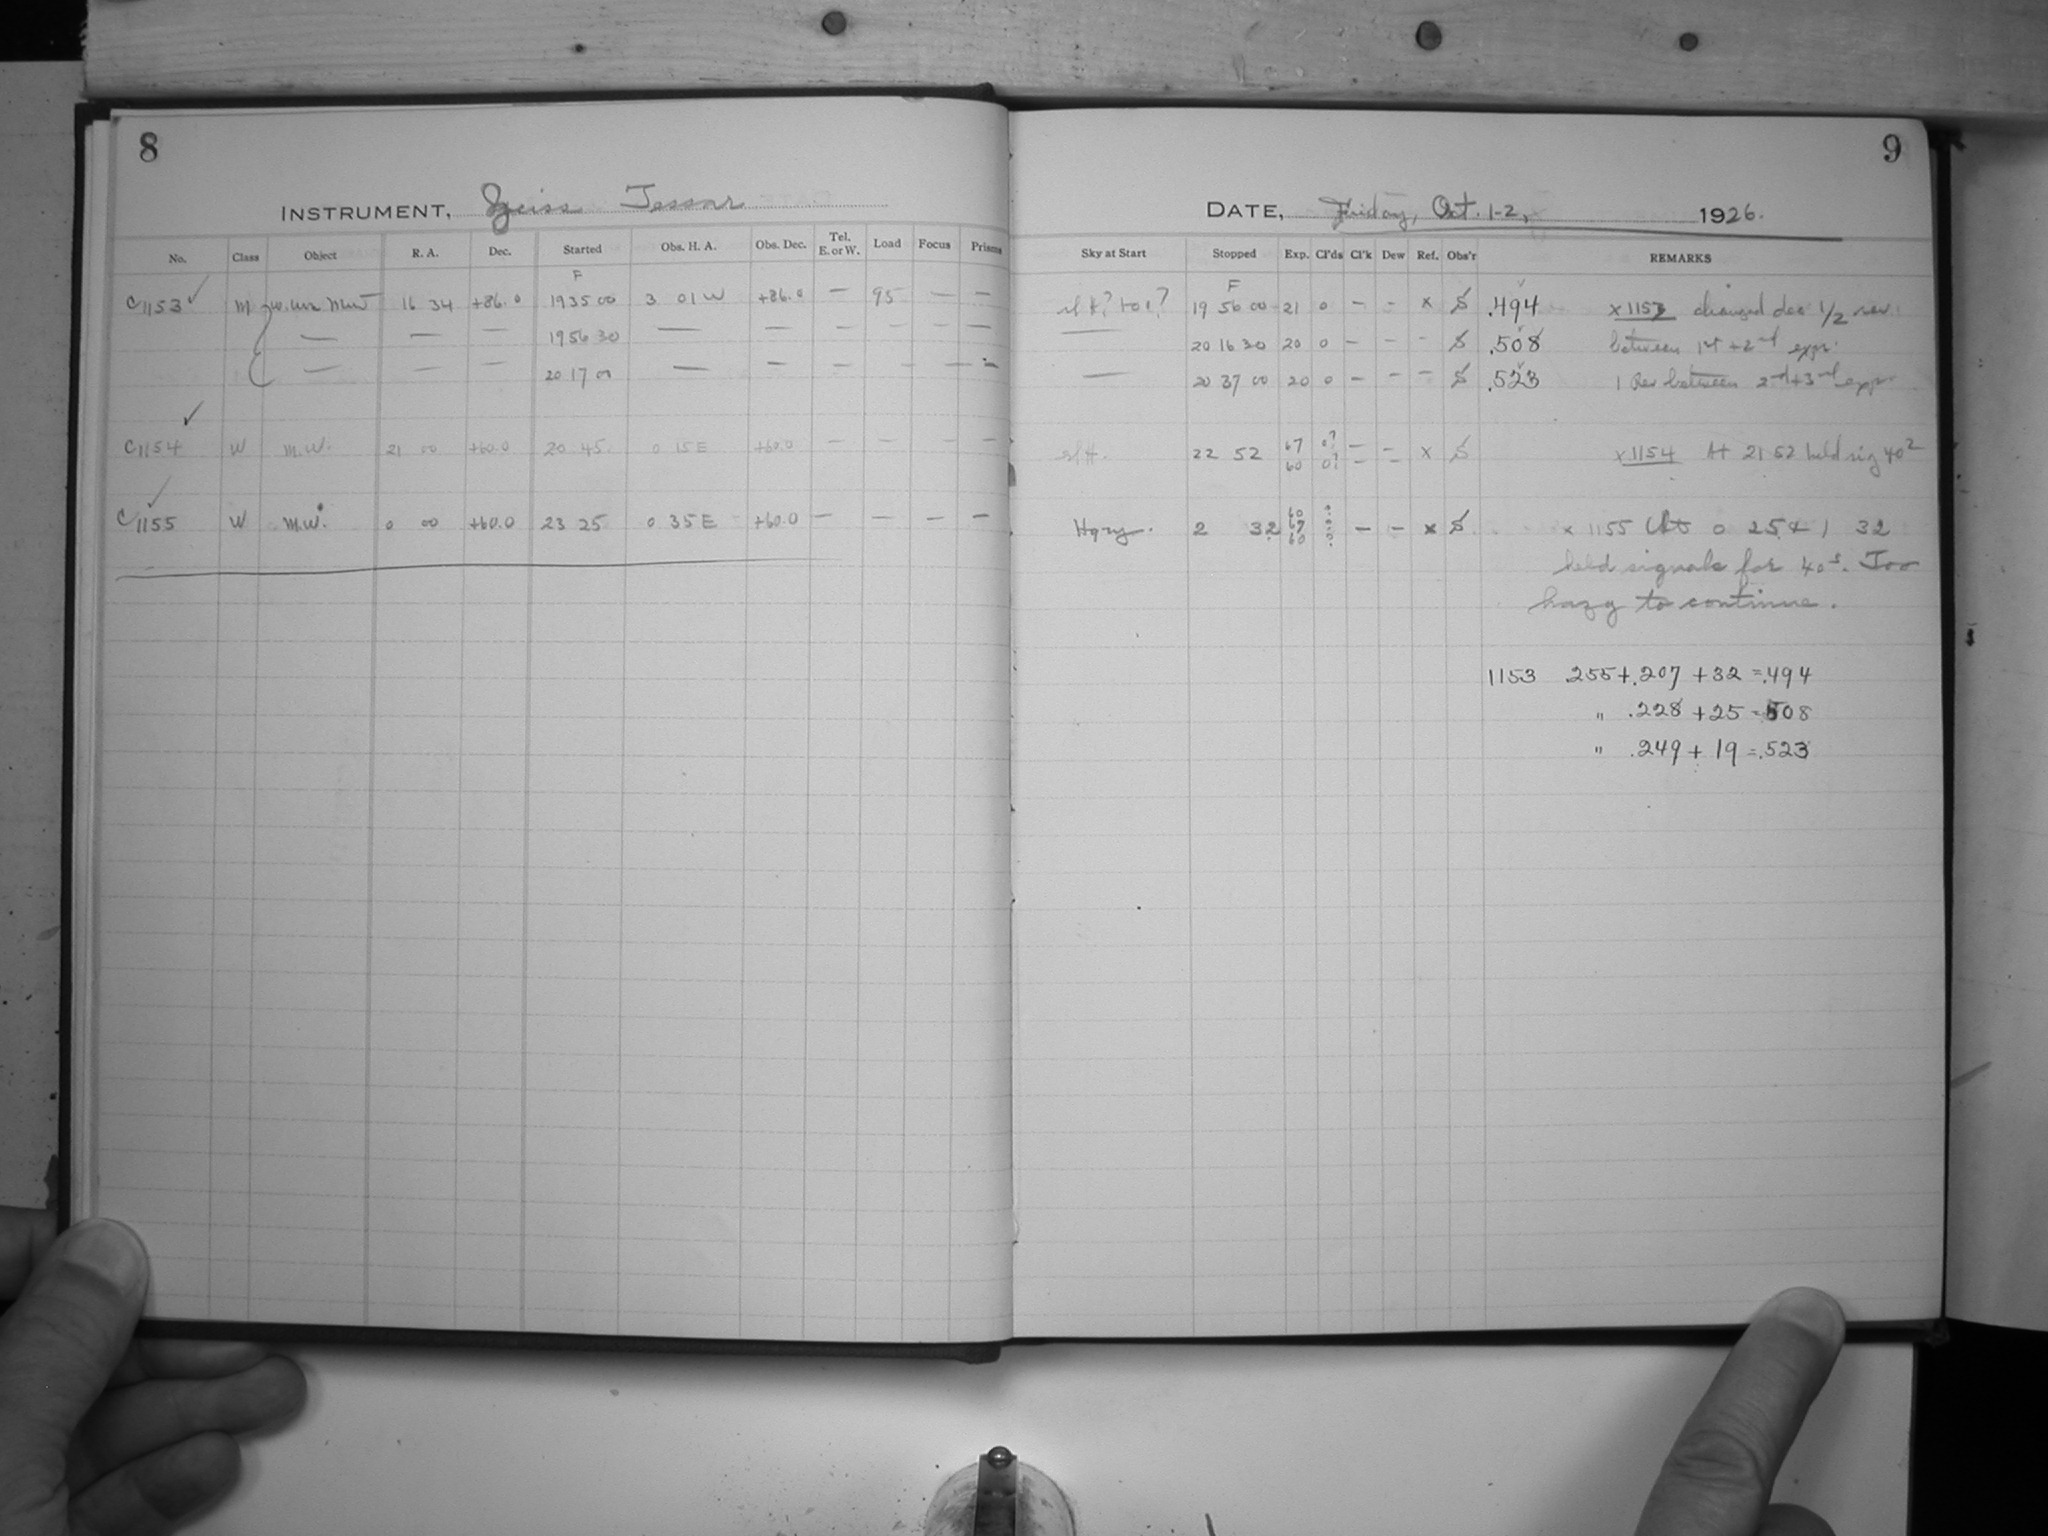 8
INSTRUMENT, Zeiss Tessar
No. Class Object R. A. Dec. Started Obs. H. A. Obs. Dec. Tel. E. or W. Load Focus Prisms
F
C1153 ✓ M 16 34 +86.0 19 35 00 3 01 W +86.0 — 95 — —
— — — 19 56 30 — — — — — —
— — — 20 17 00 — — — — — —
✓
C1154 W M.W. 21 00 +60.0 20 45 0 15 E +60.0 — — — —
✓
C1155 W M.W. 0 00 +60.0 23 25 0 35 E +60.0 — — — —
9
DATE, Friday, Oct. 1-2, 1926.
Sky at Start Stopped Exp. Cl'ds Cl'k Dew Ref. Obs'r REMARKS
F
19 56 00 21 0 — — x S .494 x 1153 changed dec 1/2 rev.
— 20 16 30 20 0 — — — S .508 between 1st + 2nd exp.
— 20 37 00 20 0 — — — S .523 1 Rev between 2nd + 3rd exp.
sl H. 22 52 67 60 0? 0? — — — — x S x 1154 At 21 52 held sig 40s
Hazy. 2 32 60 67 60 ? ? ? — — x S x 1155 At 0 25 & 1 32
held signals for 40s. Too
hazy to continue.
1153 .255+.207 +32 =.494
" .228 +25 = 508
" .249 + 19 =.523